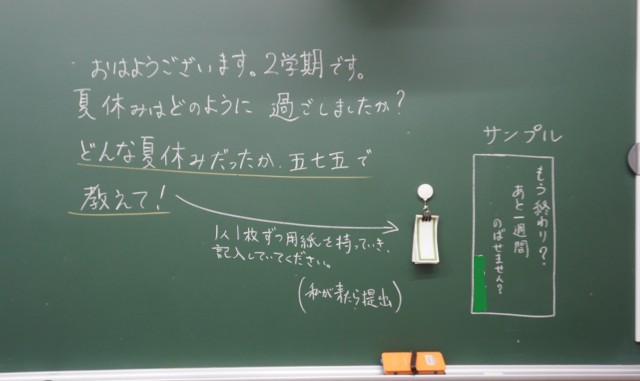 ・おはようございます。2学期です。
夏休みはどのように過ごしましたか?
どんな夏休みだったか、五七五で
教えて!
1人1枚ずつ用紙を持っていき、
記入していてください。
(私が来たら提出)
サンプル
もう終わり?
あと一週間
のばせません?